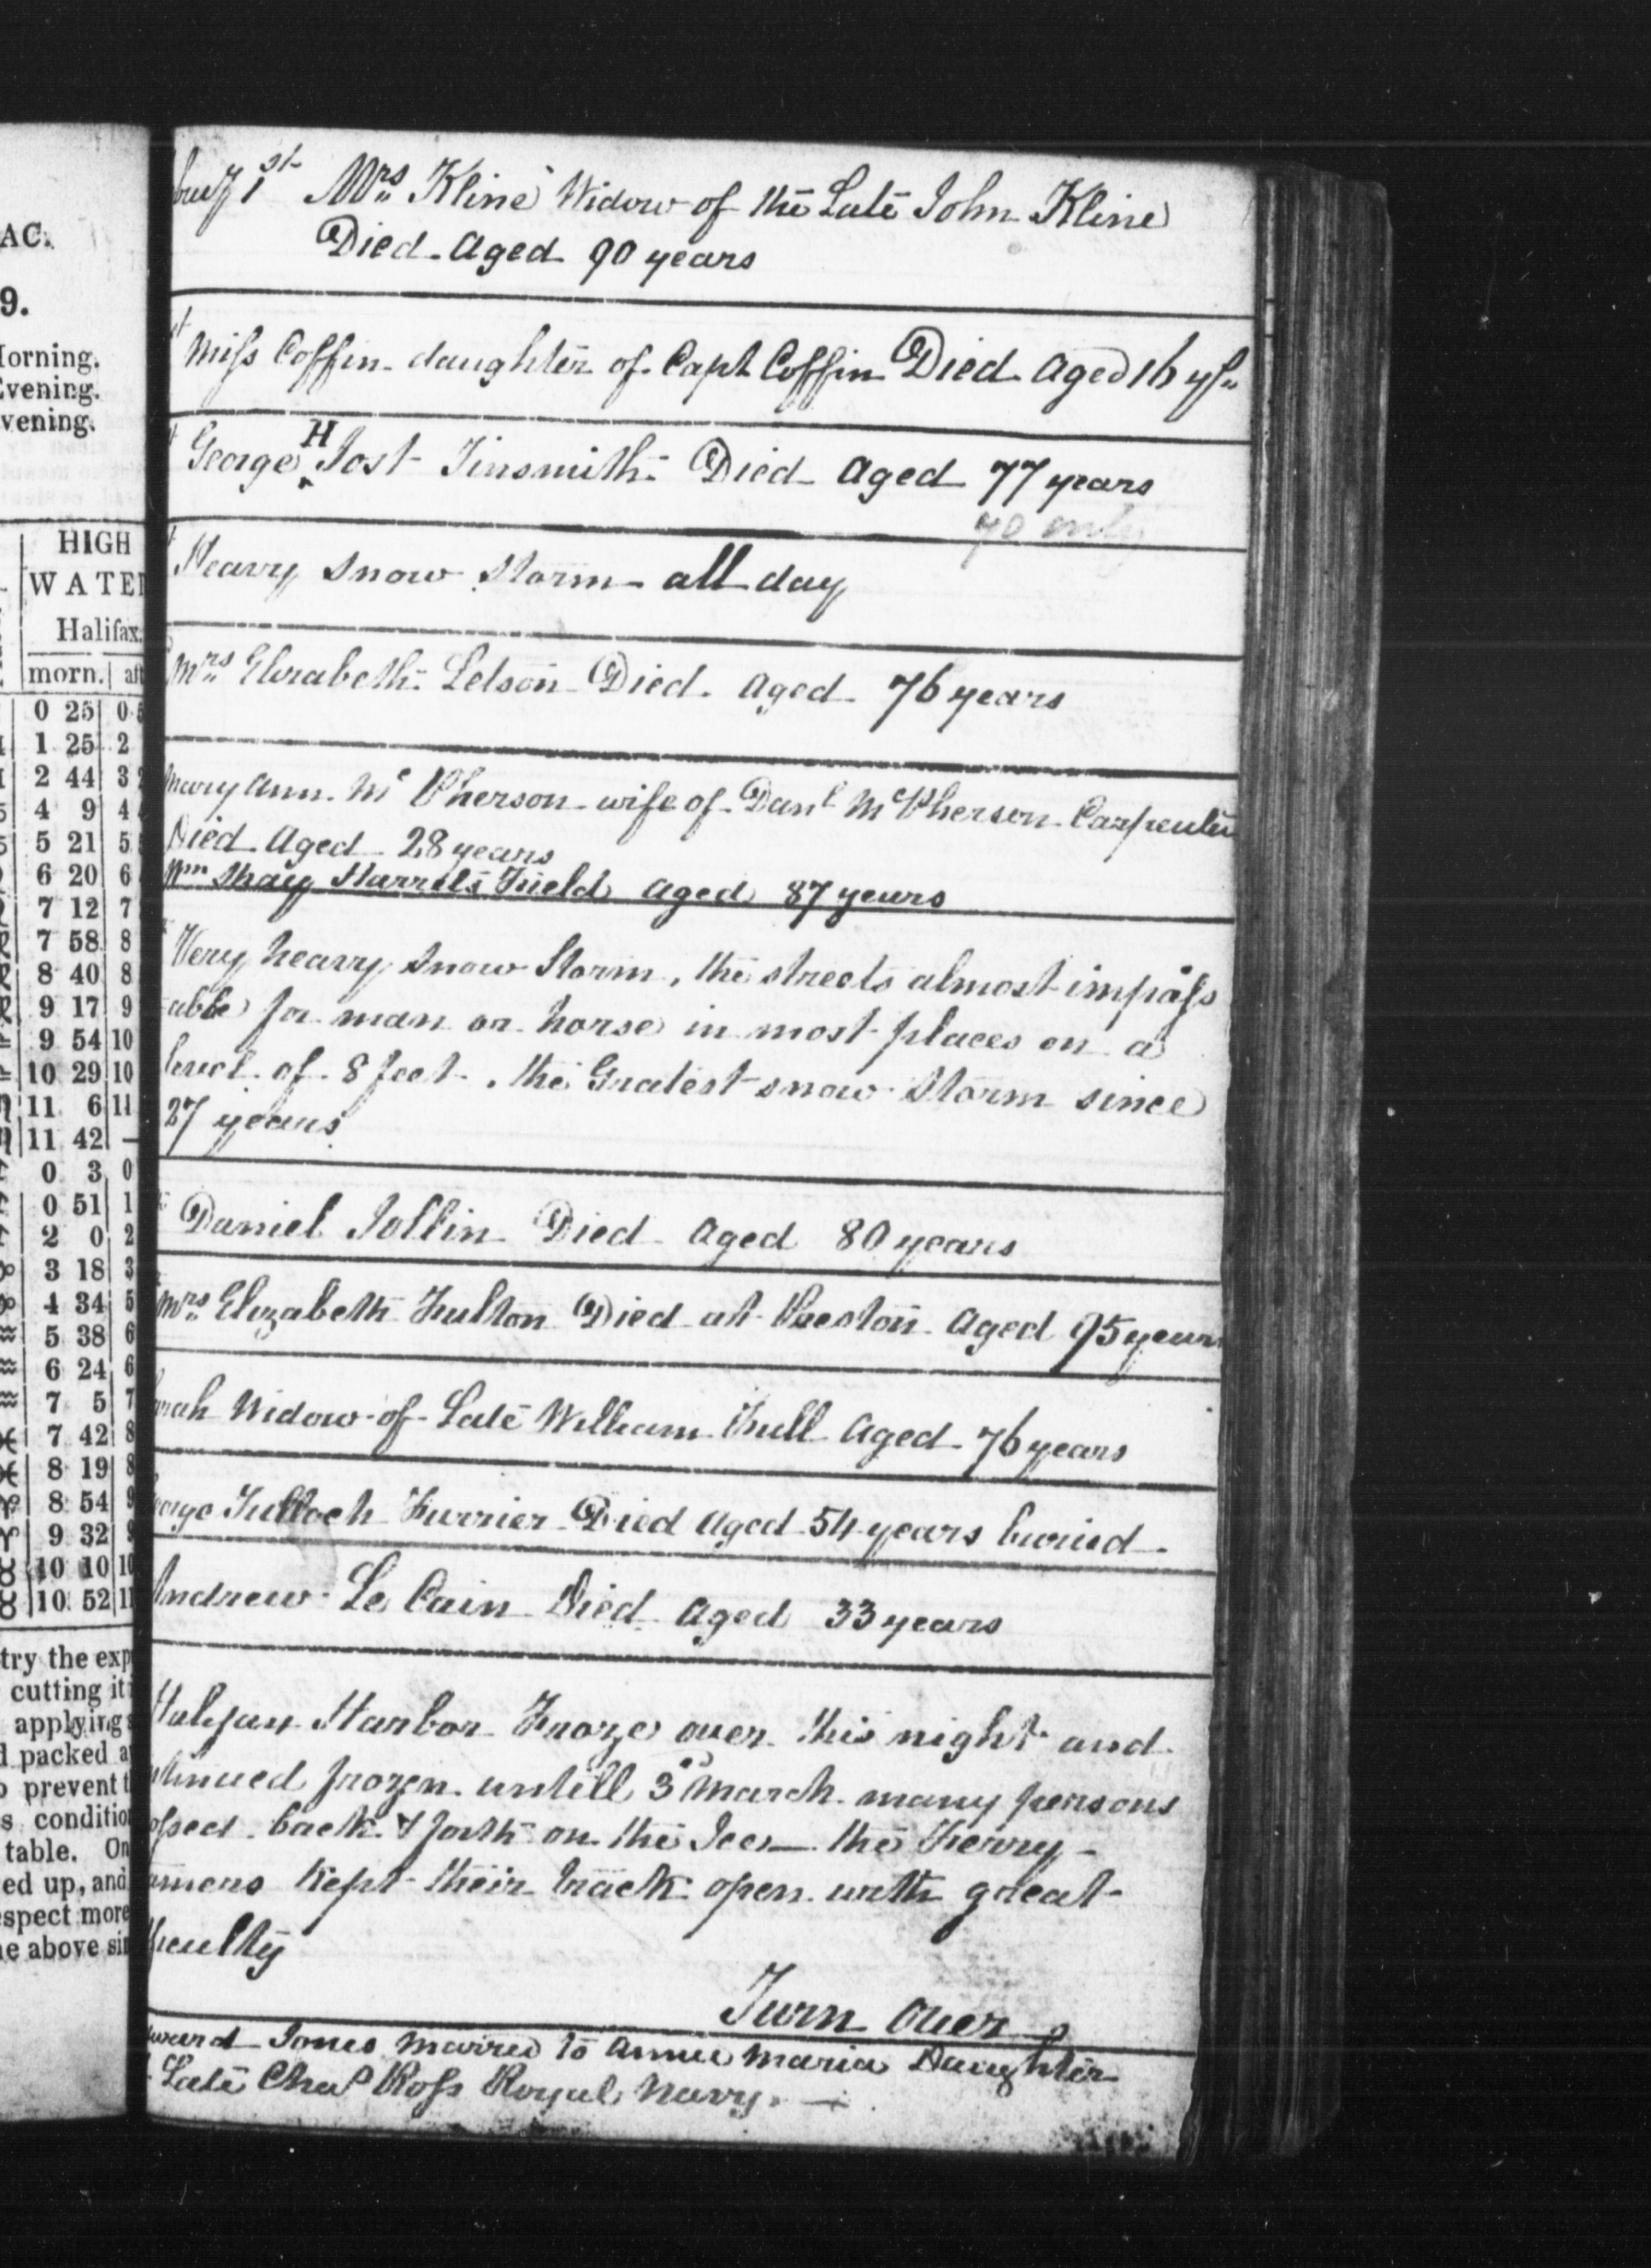 AC.
9.
Morning.
Evening.
vening.
HIGH
WATER
Halifax.
morn. aft
0 25 0 5
1 25 2
2 44 3 2
4 9 4
5 21 5
6 20 6
7 12 7
7 58 8
8 40 8
9 17 9
9 54 10
10 29 10
11 6 11
11 42 —
0 3 0
0 51 1
2 0 2
3 18 3
4 34 5
5 38 6
6 24 6
7 5 7
7 42 8
8 19 8
8 54 9
9 32 9
10 10 10
10 52 11
try the exp
cutting it
applying
d packed a
o prevent t
s condition
table. On
ed up, and
espect more
ne above sin
bruy 1st Mrs Kline Widow of the Late John Kline
Died Aged 90 years
Miss Coffin daughter of Capt Coffin Died Aged 16 yrs
George H Jost Tinsmith Died Aged 77 years
70 only
Heavy Snow Storm all day
Mrs Elizabeth Letson Died Aged 76 years
Mary Ann McPherson wife of Danl McPherson Carpenter
Died Aged 28 years
Wm May Harrits Field aged 87 years
Very heavy Snow Storm, the streets almost impass
able for man or horse in most places on a
level of 8 feet. the Gratest snow Storm since
27 years
Daniel Jollin Died Aged 80 years
Mrs Elizabeth Fulton Died at Preston Aged 95 years
arah Widow of Late William Bull Aged 76 years
eorge Tulloch Furrier Died Aged 54 years buried
Andrew Le Cain Died Aged 33 years
Halifax Harbor Froze over this night and
ntinued frozen untill 3d March many persons
ossed back & forth on the Ice the Ferry
amers kept their track open with great
ficulty
Turn Over
ward Jones married to Annie Maria Daughter
Late Chas Ross Royal Navy.